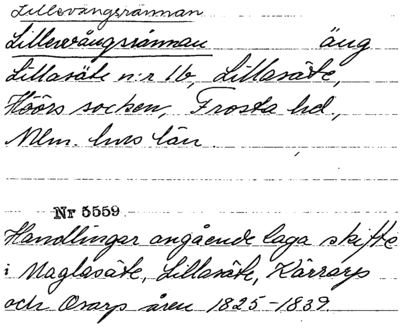 Lillevångsrännan
Lillewångsrännan äng
Lillasäte n:r 1b, Lillasäte,
Höörs socken, Frosta hd,
Mlm. hus län.
Nr 5559
Handlingar angående laga skifte
i Maglasäte, Lillasäte, Kärrarp
och Orarp åren 1825-1839.